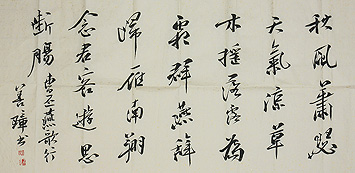 秋風蕭瑟
天氣涼草
木搖落露為
霜群燕辭
歸雁南翔
念君客遊思
斷腸 曹丕燕歌行
善璋书